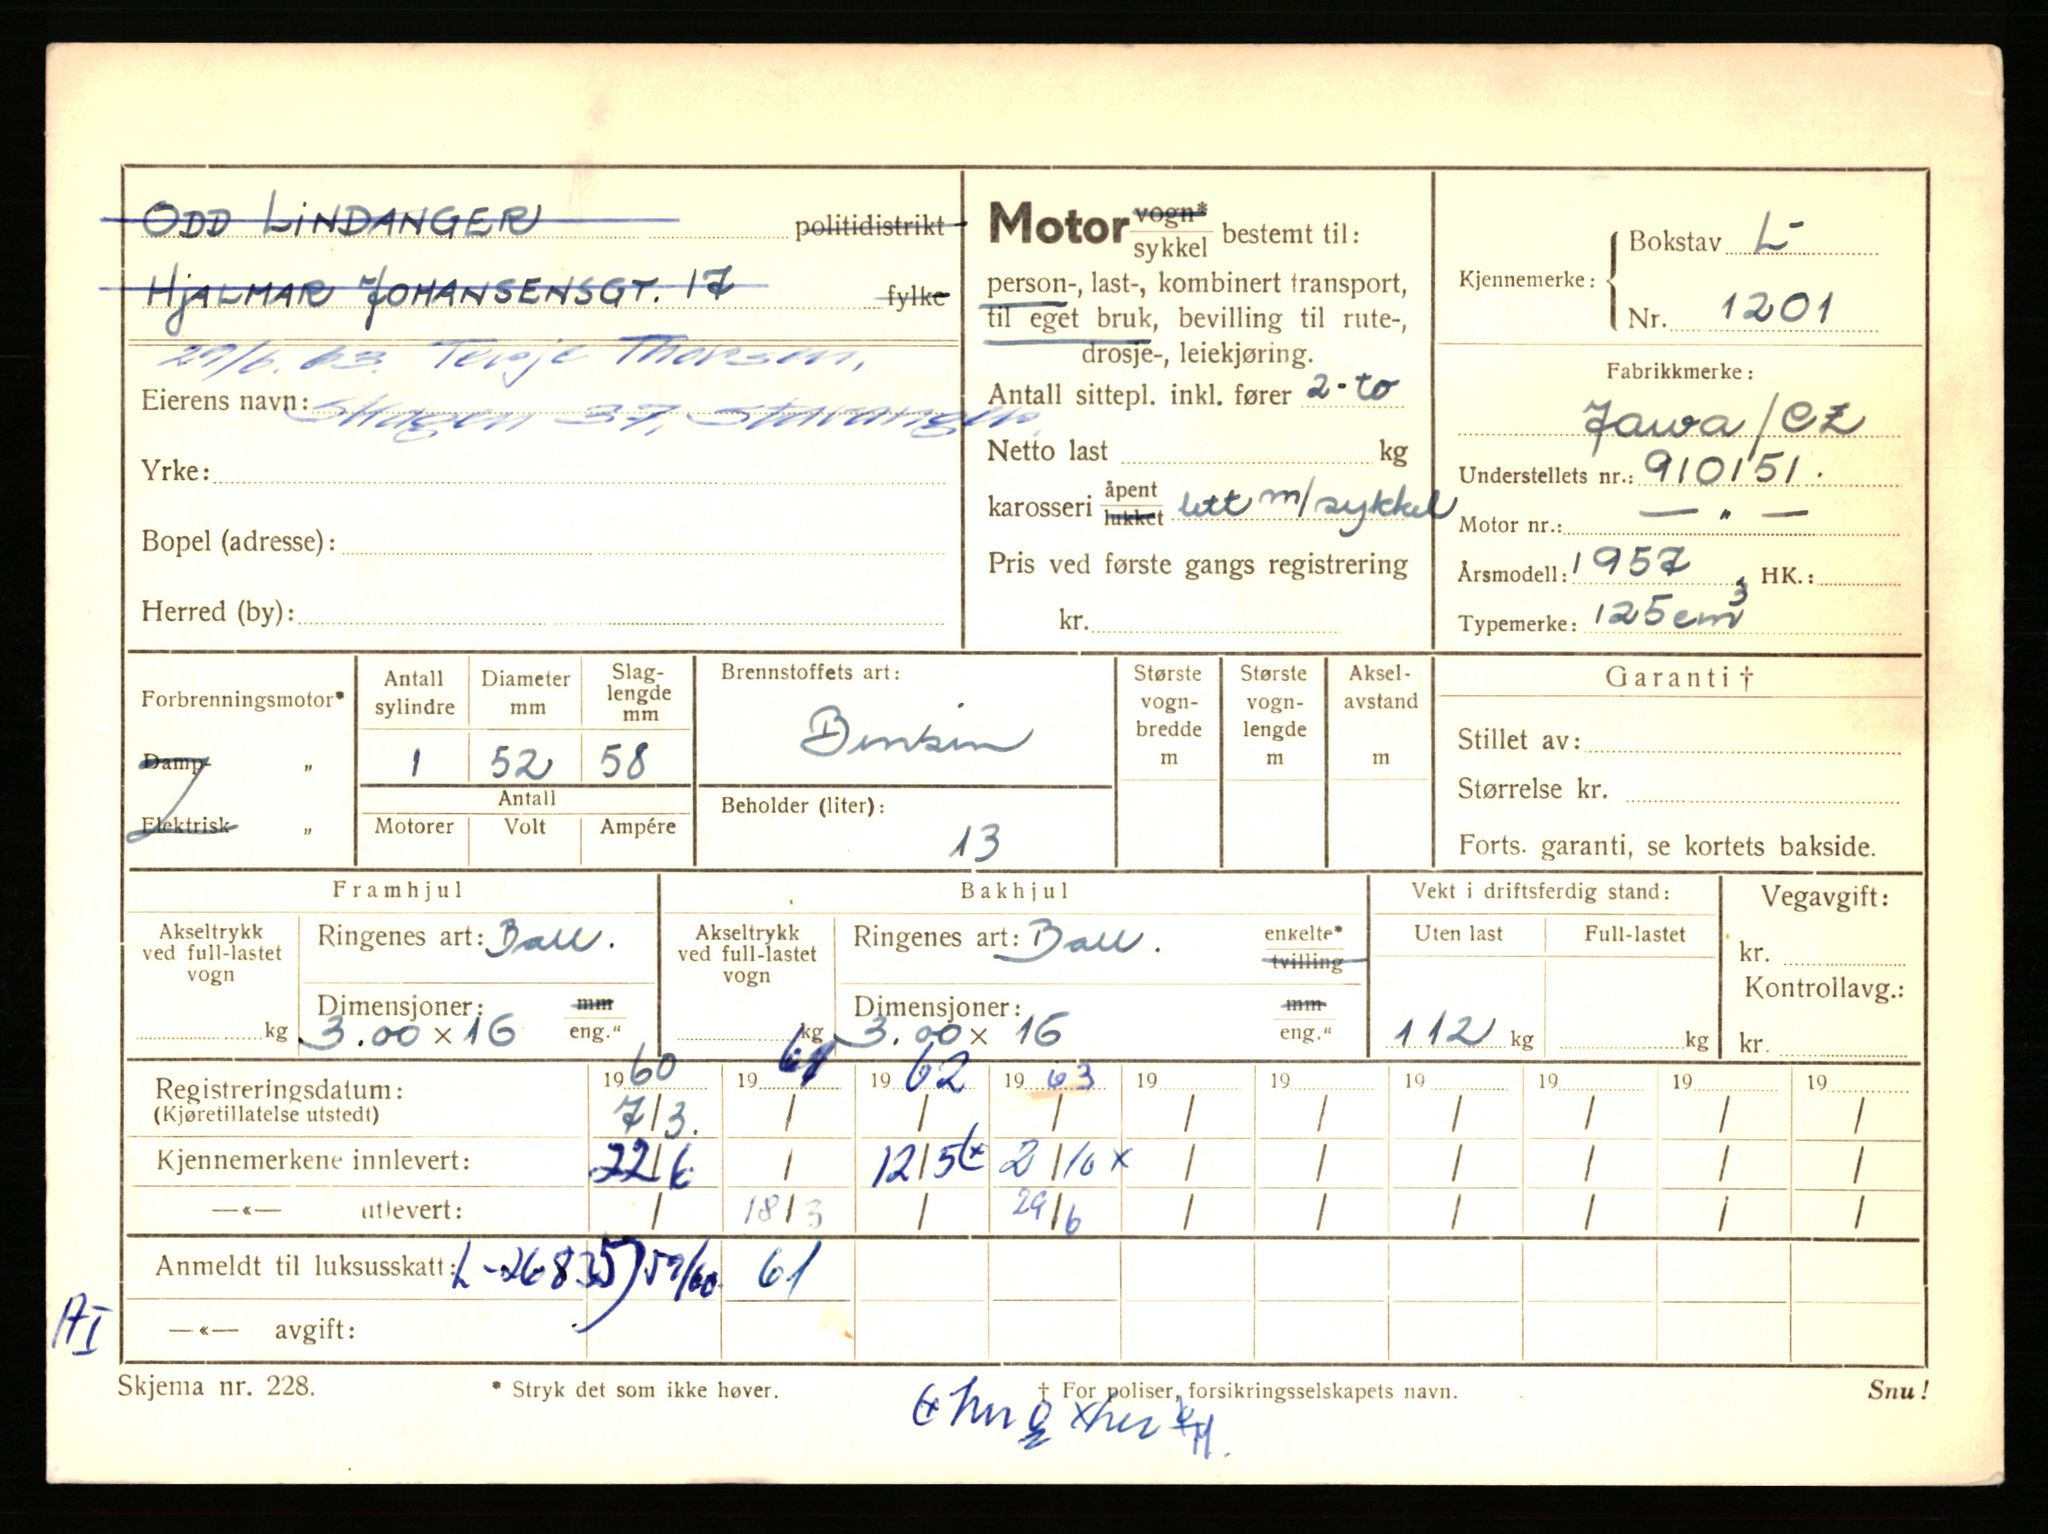 ODD LINDANGER politidistrikt
HJALMAR JOHANSENSGT. 17 fylke
29/6. 63. Terje Thorsen,
Eierens navn: Skagen 37, Stavanger.
Yrke:
Bopel (adresse):
Herred (by):
Motor vogn* / sykkel bestemt til:
person-, last-, kombinert transport,
til eget bruk, bevilling til rute-,
drosje-, leiekjøring.
Antall sittepl. inkl. fører 2-to
Netto last kg
karosseri åpent / lukket lett m/sykkel
Pris ved første gangs registrering
kr.
Kjennemerke: Bokstav L-
Nr. 1201
Fabrikkmerke:
Jawa/CZ
Understellets nr.: 910151.
Motor nr.: — " —
Årsmodell: 1957 HK.:
Typemerke: 125 cm3
Forbrenningsmotor*
Damp- „
Elektrisk „
Antall sylindre Diameter mm Slag-lengde mm
1 52 58
Antall
Motorer Volt Ampére
Brennstoffets art:
Bensin
Beholder (liter):
13
Største vogn-bredde m
Største vogn-lengde m
Aksel-avstand m
Garanti †
Stillet av:
Størrelse kr.
Forts. garanti, se kortets bakside.
Framhjul
Akseltrykk ved full-lastet vogn kg
Ringenes art: Ball.
Dimensjoner: mm
3.00 × 16 eng."
Bakhjul
Akseltrykk ved full-lastet vogn kg
Ringenes art: Ball. enkelte* / tvilling
Dimensjoner: mm
3.00 × 16 eng."
Vekt i driftsferdig stand:
Uten last Full-lastet
112 kg kg
Vegavgift:
kr.
Kontrollavg.:
kr.
Registreringsdatum: 1960 19 61 19 62 19 63 19 19 19 19 19 19
(Kjøretillatelse utstedt) 7/3. / / / / / / / / /
Kjennemerkene innlevert: 22/6 / 12/5 (x 2/10 x / / / / / /
—«— utlevert: / 18/3 / 29/6 / / / / / /
Anmeldt til luksusskatt: L-26835) 59/60 61
AI
—«— avgift:
Skjema nr. 228. * Stryk det som ikke høver. † For poliser, forsikringsselskapets navn. Snu!
(x her x her